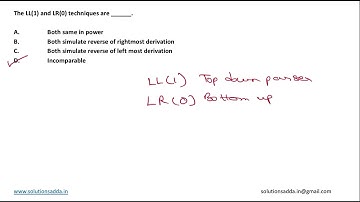 The LL(1) and LR(0) techniques are ______.
A. Both same in power
B. Both simulate reverse of rightmost derivation
C. Both simulate reverse of left most derivation
D. Incomparable
LL(1) Top down parser
LR(0) Bottom up
www.solutionsadda.in solutionsadda.in@gmail.com